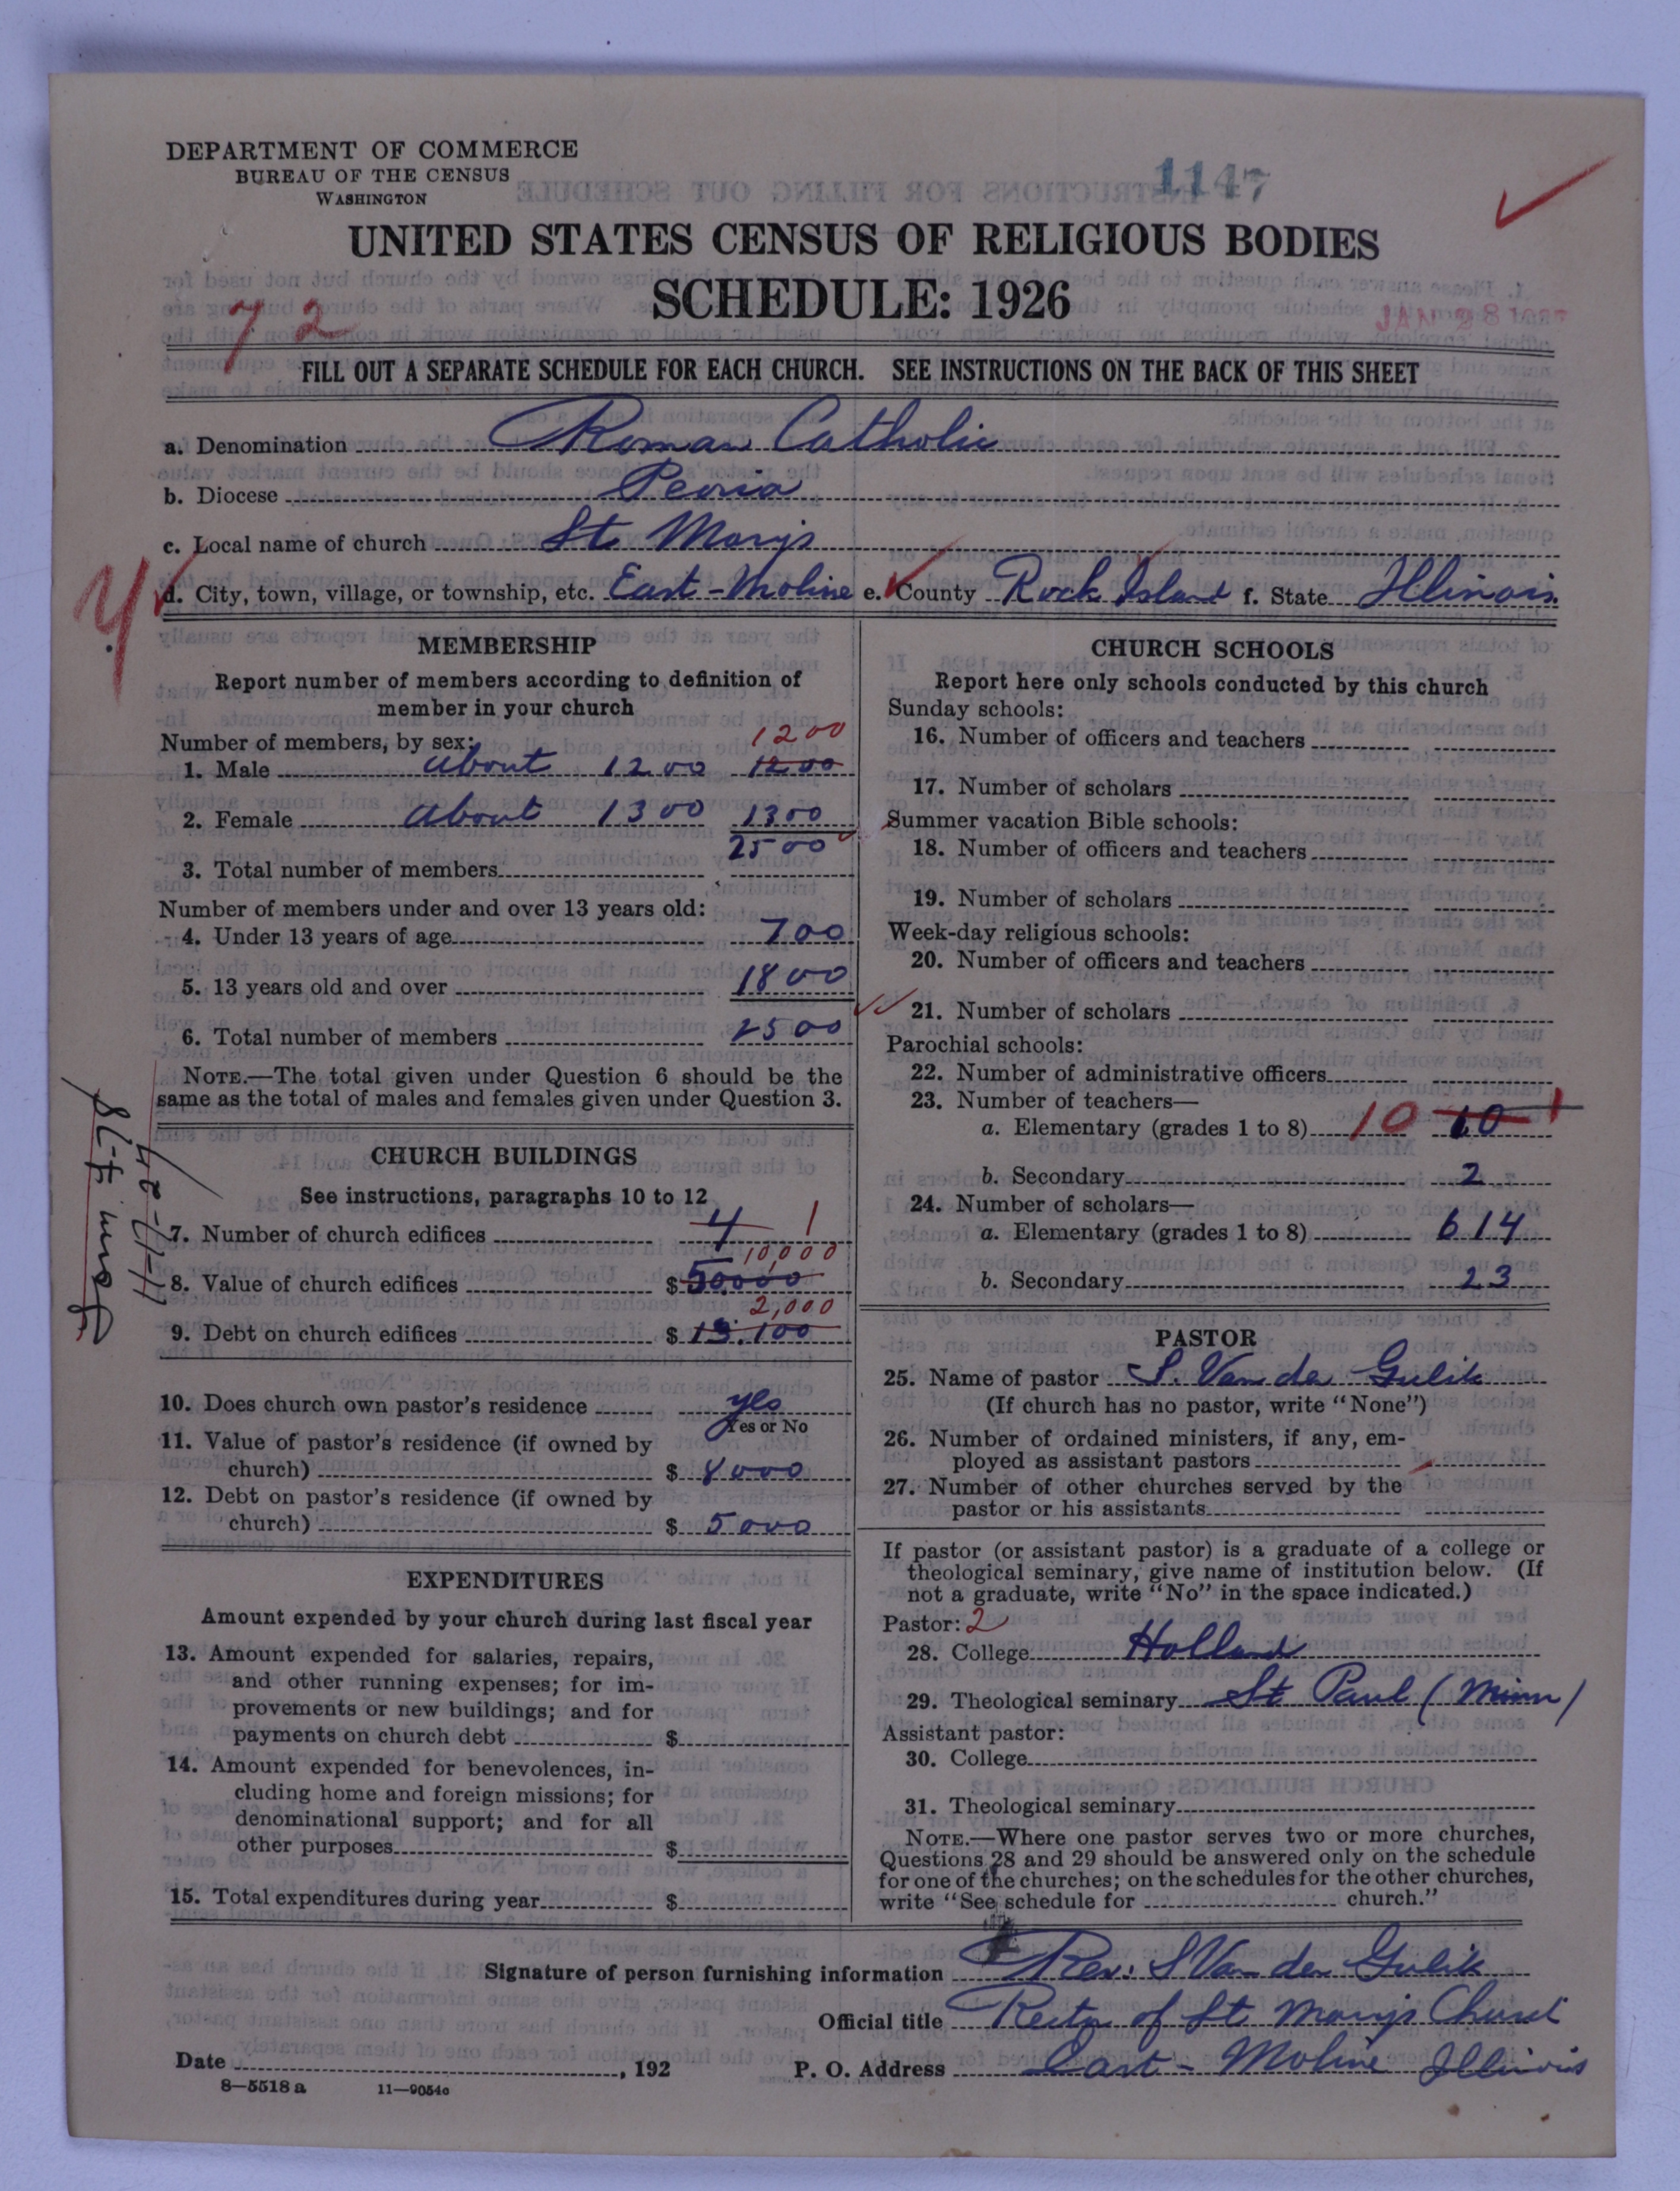 DEPARTMENT OF COMMERCE
BUREAU OF THE CENSUS
WASHINGTON
1147
UNITED STATES CENSUS OF RELIGIOUS BODIES
SCHEDULE: 1926
72
JAN 28 1927
FILL OUT A SEPARATE SCHEDULE FOR EACH CHURCH. SEE INSTRUCTIONS ON THE BACK OF THIS SHEET
a. Denomination Roman Catholic
b. Diocese Peoria
c. Local name of church St. Marys
d. City, town, village, or township, etc. East-Moline e. County Rock Island f. State Illinois
MEMBERSHIP
Report number of members according to definition of
member in your church
Number of members, by sex:
1200
1. Male about 1200 1200
2. Female about 1300 1300
2500
3. Total number of members
Number of members under and over 13 years old:
4. Under 13 years of age 700
5. 13 years old and over 1800
6. Total number of members 2500
NOTE.—The total given under Question 6 should be the
same as the total of males and females given under Question 3.
CHURCH BUILDINGS
See instructions, paragraphs 10 to 12
7. Number of church edifices 4 1
10,000
8. Value of church edifices $ 50000
2,000
9. Debt on church edifices $ 13.100
10. Does church own pastor's residence yes
Yes or No
11. Value of pastor's residence (if owned by
church) $ 8000
12. Debt on pastor's residence (if owned by
church) $ 5000
EXPENDITURES
Amount expended by your church during last fiscal year
13. Amount expended for salaries, repairs,
and other running expenses; for im-
provements or new buildings; and for
payments on church debt $
14. Amount expended for benevolences, in-
cluding home and foreign missions; for
denominational support; and for all
other purposes $
15. Total expenditures during year $
CHURCH SCHOOLS
Report here only schools conducted by this church
Sunday schools:
16. Number of officers and teachers
17. Number of scholars
Summer vacation Bible schools:
18. Number of officers and teachers
19. Number of scholars
Week-day religious schools:
20. Number of officers and teachers
21. Number of scholars
Parochial schools:
22. Number of administrative officers
23. Number of teachers—
a. Elementary (grades 1 to 8) 10 10
b. Secondary 2
24. Number of scholars—
a. Elementary (grades 1 to 8) 614
b. Secondary 23
PASTOR
25. Name of pastor S. Van der Gulik
(If church has no pastor, write "None")
26. Number of ordained ministers, if any, em-
ployed as assistant pastors
27. Number of other churches served by the
pastor or his assistants
If pastor (or assistant pastor) is a graduate of a college or
theological seminary, give name of institution below. (If
not a graduate, write "No" in the space indicated.)
Pastor: 2
28. College Holland
29. Theological seminary St Paul (Minn)
Assistant pastor:
30. College
31. Theological seminary
NOTE.—Where one pastor serves two or more churches,
Questions 28 and 29 should be answered only on the schedule
for one of the churches; on the schedules for the other churches,
write "See schedule for church."
Signature of person furnishing information Rev. S Van der Gulik
Official title Rector of St Marys Church
Date , 192
P. O. Address East-Moline Illinois
8—5518 a 11—9054c